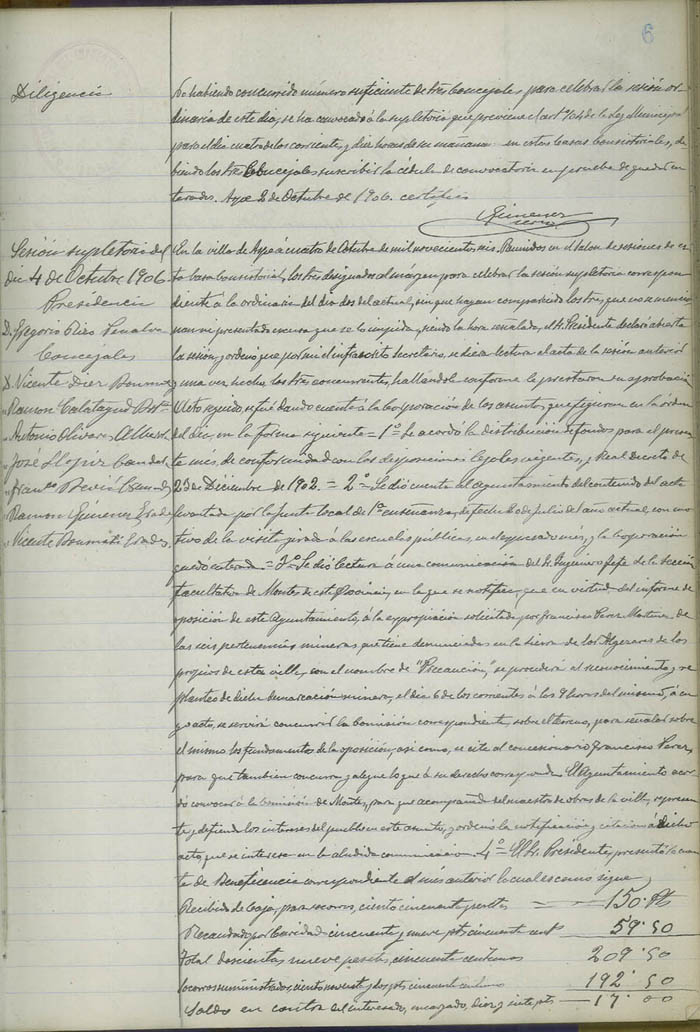 6
Diligencia
No habiendo concurrido número suficiente de Sres Concejales para celebrar la sesión or-
dinaria de este dia, se ha convocado á la supletoria que previene el art.º 104 de la Ley Municipal
para el dia cuatro de los corrientes, y diez horas de su mañana en estas Casas Consistoriales, de-
biendo los Sres Concejales, suscribir la cédula de convocatoria en prueba de quedar en-
terados. Aspe 2 de Octubre de 1906. certifico
Gimenez
Sesión supletoria del
dia 4 de Octubre 1906
Presidencia
D. Gregorio Rizo Penalva
Concejales
D. Vicente Diez
" Ramon Calatayud
" Antonio Olivares
" José
" Franco
" Ramon Gimenez
" Vicente
En la villa de Aspe á cuatro de Octubre de mil novecientos seis. Reunidos en el salon de sesiones de es-
ta Casa Consistorial, los Sres designados al margen para celebrar la sesión supletoria correspon-
diente á la ordinaria del dia dos del actual, sin que hayan comparecido los Sres, que no se mencio-
nan ni presentado excusa que se lo impida, y siendo la hora señalada, el Sr. Presidente declaró abierta
la sesión, y ordenó que por mi el infrascrito secretario, se diera lectura al acta de la sesión anterior
y una vez hecho, los Sres concurrentes, hallandola conforme la prestaron su aprobación
Acto seguido, se fué dando cuenta á la Corporación de los asuntos, que figuran en la órden
del dia, en la forma siguiente = 1º Se acordó la distribución de fondos para el presen-
te mes, de conformidad con las disposiciones legales vigentes, y Real decreto de
23 de Diciembre de 1902. = 2º Se dió cuenta al Ayuntamiento del contenido del acta
levantada por la Junta local de 1ª enseñanza, de fecha de Julio del año actual, con mo-
tivo de la visita girada á las escuelas publicas, en el expresado mes, y la Corporación
quedó enterada = 3º Se dió lectura á una comunicación del Sr. Ingeniero Jefe de la Sección
facultativa de Montes de esta Provincia, en la que se notifica que en virtud del informe de
oposición de este Ayuntamiento, á la expropiación solicitada por Francisco Perez Martinez de
las seis pertenencias mineras que tiene denunciadas en la sierra de los Algezares de los
propios de esta villa, con el nombre de "Precaución," se procederá al reconocimiento y re-
planteo de dicha demarcación minera, el dia 6 de los corrientes á las 9 horas del mismo, á cu-
yo acto, se servirá concurrir la Comisión correspondiente, sobre el terreno, para señalar sobre
el mismo los fundamentos de la oposición, asi como, se cite al concesionario Francisco Perez,
para que tambien concurra y alegue lo que á su derecho corresponda. El Ayuntamiento acor-
dó convocar á la Comisión de Montes, para que acompañada del maestro de obras de la villa, represen-
te y defienda los intereses del pueblo en este asunto, y ordenó la notificación y citación á dicho
acto, que se interesa en la aludida comunicación. 4º = El Sr. Presidente, presentó la cuen-
ta de Beneficencia correspondiente al mes anterior la cual es como sigue
Recibido de Caja, para socorros, ciento cincuenta pesetas = 150. Pts
Recaudado por Caridad cincuenta y nueve pts cincuenta cents 59'50
Total doscientas nueve pesetas, cincuenta centimos 209'50
Socorros suministrados, ciento noventa y dos pts, cincuenta centimos 192'50
Saldo en contra del interesado, encargado, diez y siete pts. 17'00